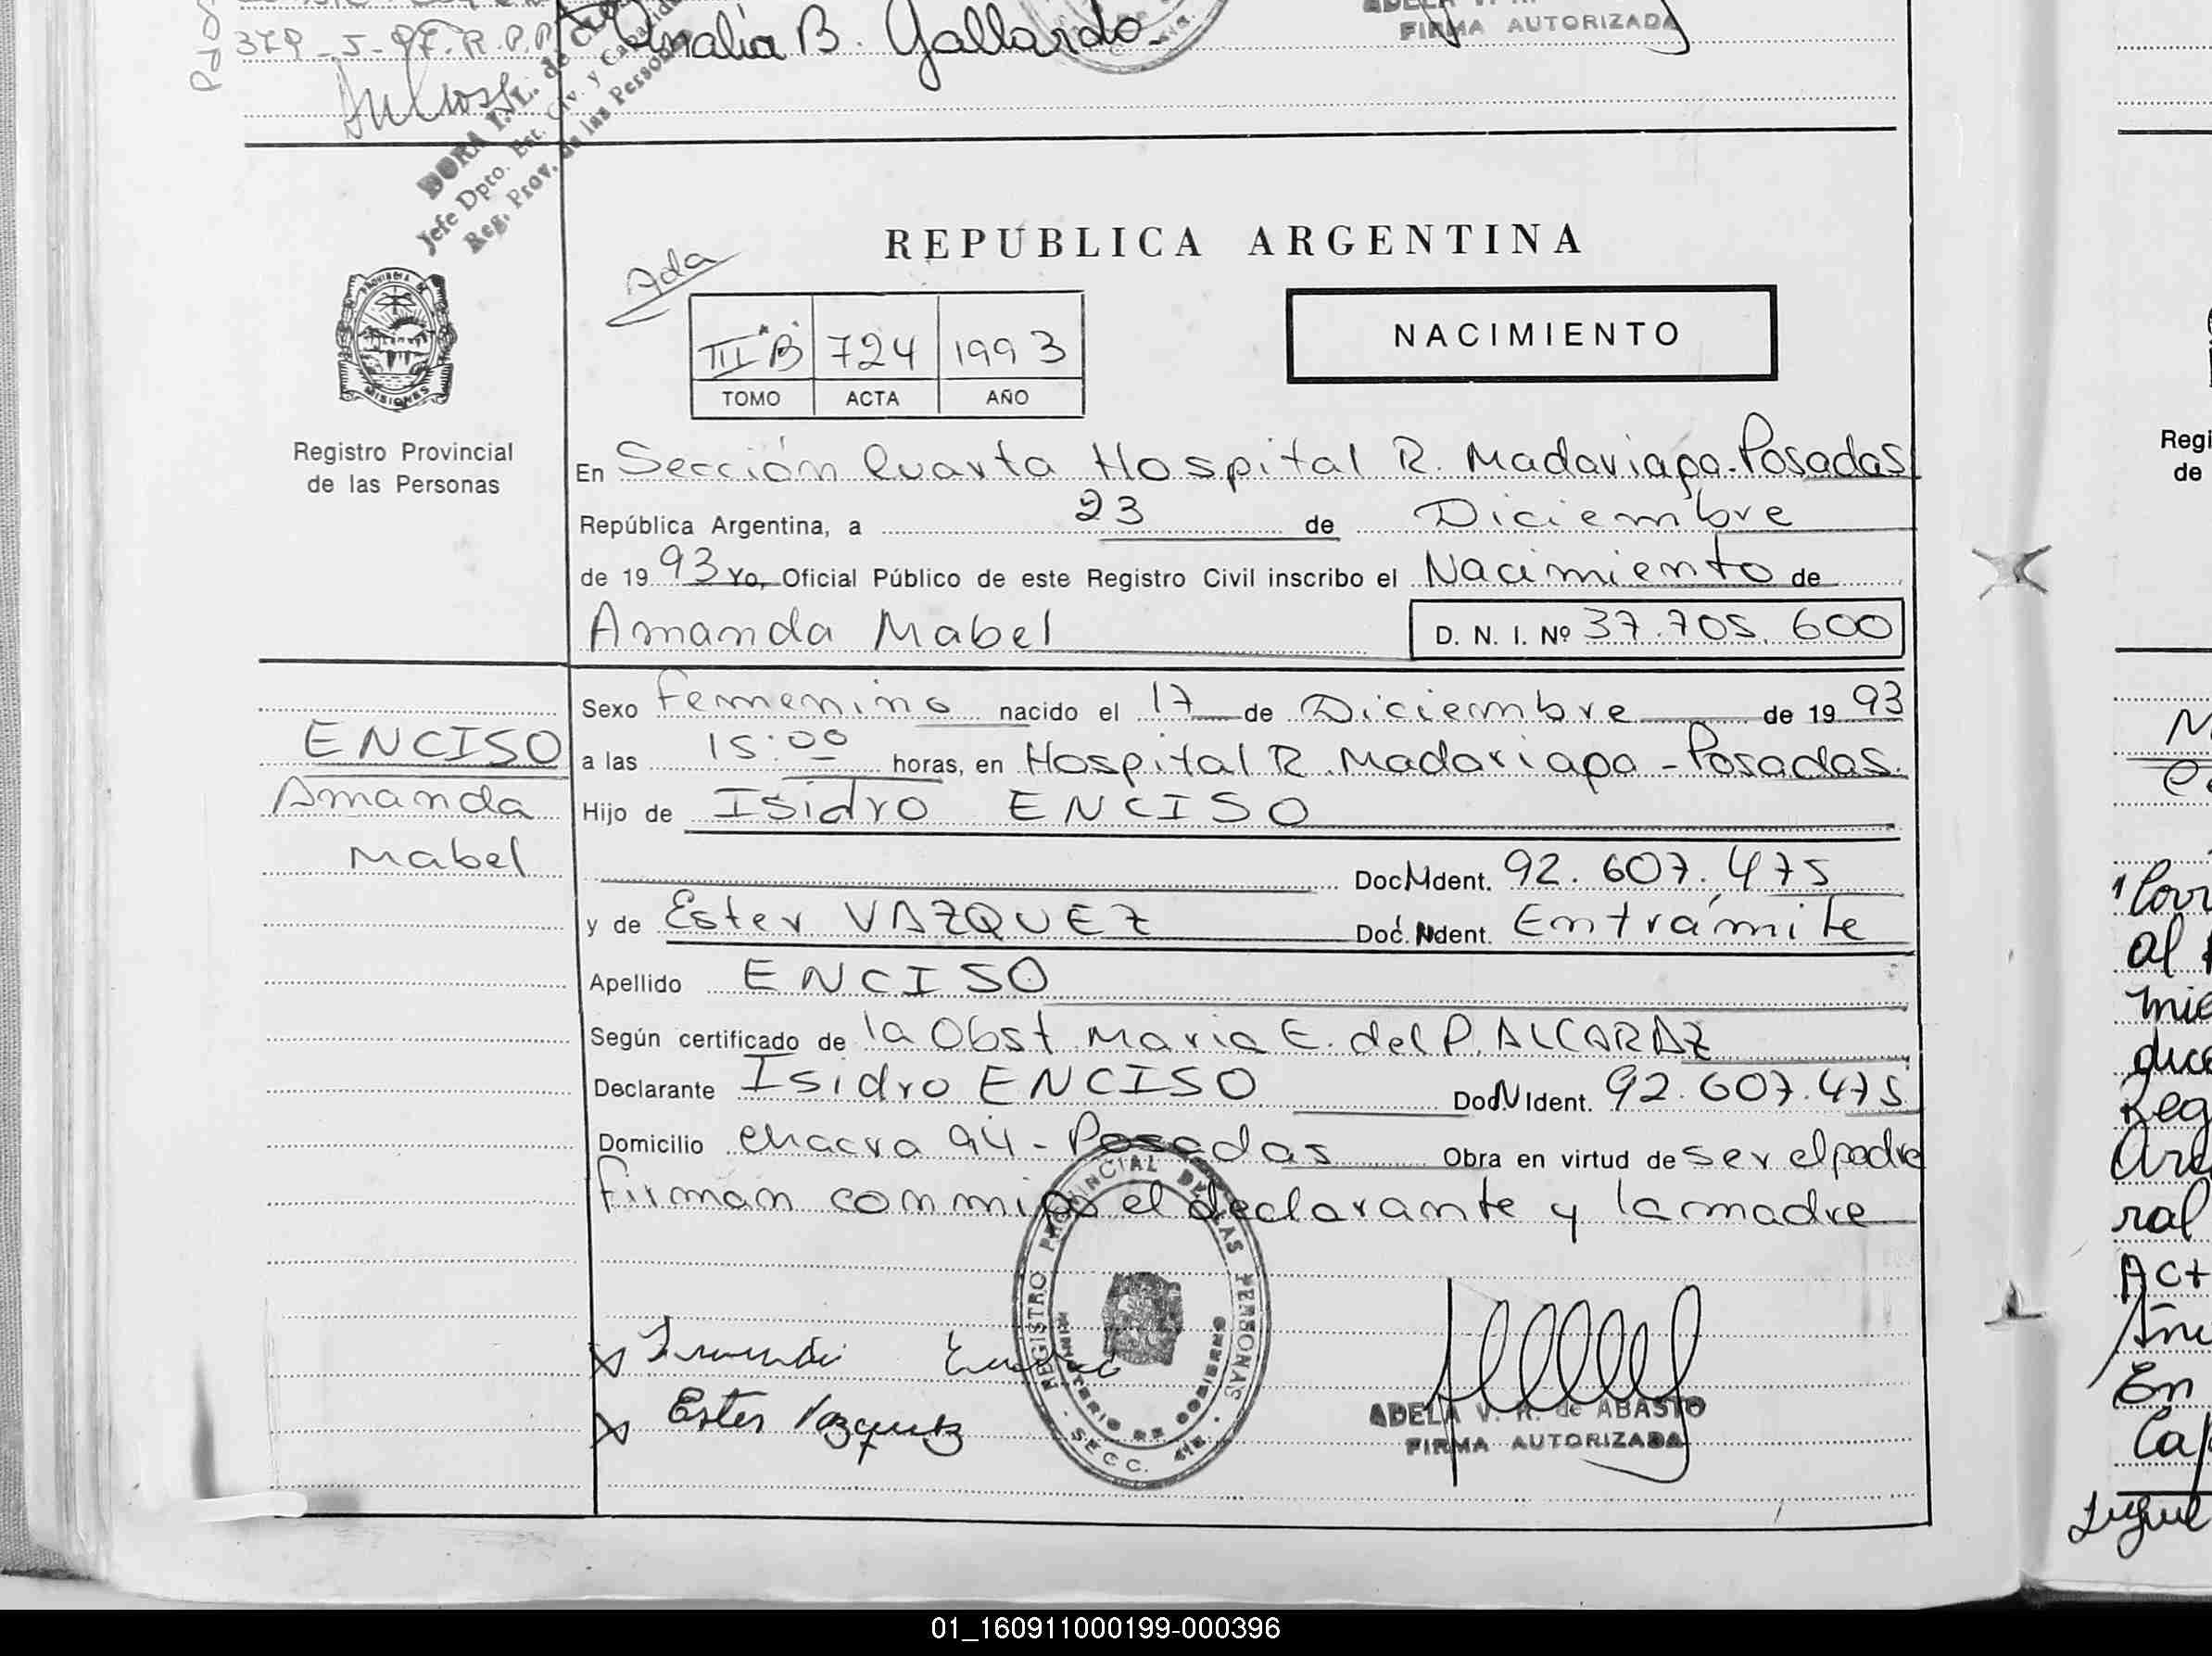 379-J-97-R.P.P.
Analía B. Gallardo
FIRMA AUTORIZADA
DORA I. V. L. de
Jefe Dpto. Est. Civ. y Capacidad
Reg. Prov. de las Personas
REPUBLICA ARGENTINA
III "B" 724 1993
TOMO ACTA AÑO
NACIMIENTO
PROVINCIA
MISIONES
Registro Provincial
de las Personas
En Sección Cuarta Hospital R. Madariaga-Posadas
República Argentina, a 23 de Diciembre
de 1993 Yo, Oficial Público de este Registro Civil inscribo el Nacimiento de
Amanda Mabel D. N. I. Nº 37.705.600
ENCISO
Amanda
Mabel
Sexo Femenino nacido el 17 de Diciembre de 1993
a las 15:00 horas, en Hospital R. Madariaga - Posadas.
Hijo de Isidro ENCISO
Doc. Ident. 92.607.475
y de Ester VAZQUEZ Doc. Ident. En trámite
Apellido ENCISO
Según certificado de la Obst Maria E. del P. ALCARAZ
Declarante Isidro ENCISO Doc. Ident. 92.607.475
Domicilio chacra 94 - Posadas Obra en virtud de ser el padre
firman conmigo el declarante y la madre
REGISTRO PROVINCIAL DE LAS PERSONAS
MINISTERIO DE GOBIERNO
SECC. 4ta.
Ester Vazquez
ADELA V. R. de ABASTO
FIRMA AUTORIZADA
Regi
de
al
mie
duce
Reg
ral
Act
En
01_160911000199-000396